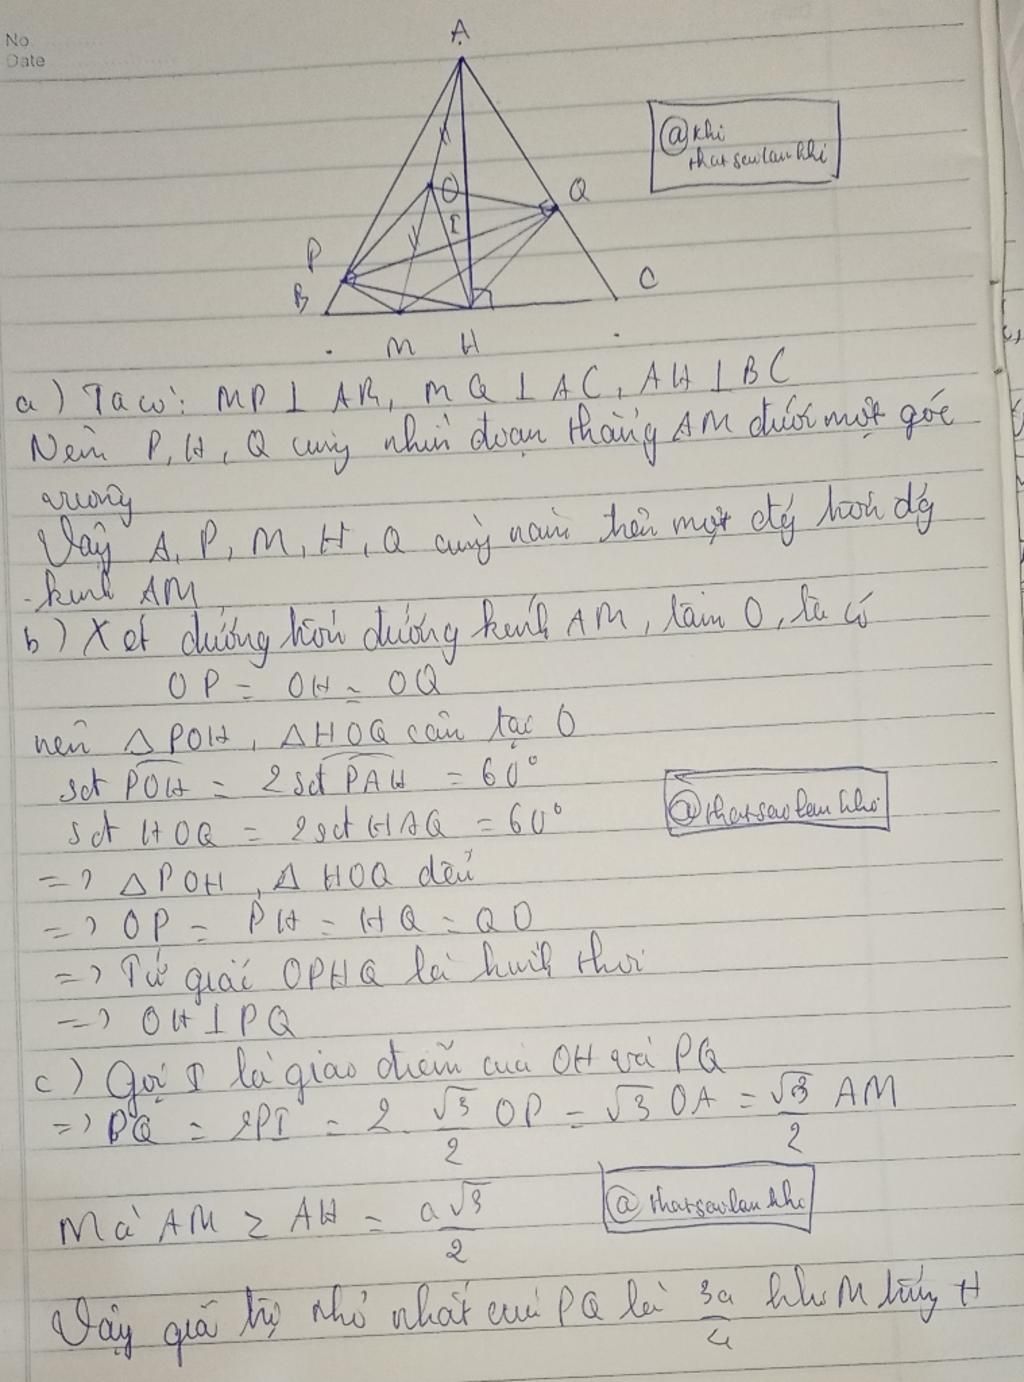 No.
Date
A
@khi
thatsaulankhi
O
Q
I
P
B
C
M H
a) Ta có: MP ⊥ AB, MQ ⊥ AC, AH ⊥ BC
Nên P, H, Q cùng nhìn đoạn thẳng AM dưới một góc
vuông
Vậy A, P, M, H, Q cùng nằm trên một đg tròn đg
kính AM
b) Xét đường tròn đường kính AM, tâm O, ta có
OP = OH = OQ
nên △POH, △HOQ cân tại O
sđ POH = 2sđ PAH = 60°
sđ HOQ = 2sđ HAQ = 60°
=> △POH, △HOQ đều
=> OP = PH = HQ = QO
=> Tứ giác OPHQ là hình thoi
=> OH ⊥ PQ
c) Gọi I là giao điểm của OH và PQ
=> PQ = 2PI = 2. √3/2 OP = √3 OA = √3/2 AM
Mà AM ≥ AH = a√3/2
Vậy giá trị nhỏ nhất của PQ là 3a/4 khi M trùng H